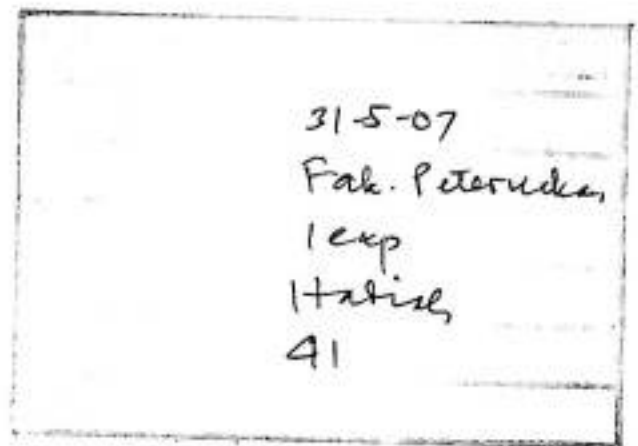 31-5-07
Fak. Peternakan
1 exp
Hadiah
41